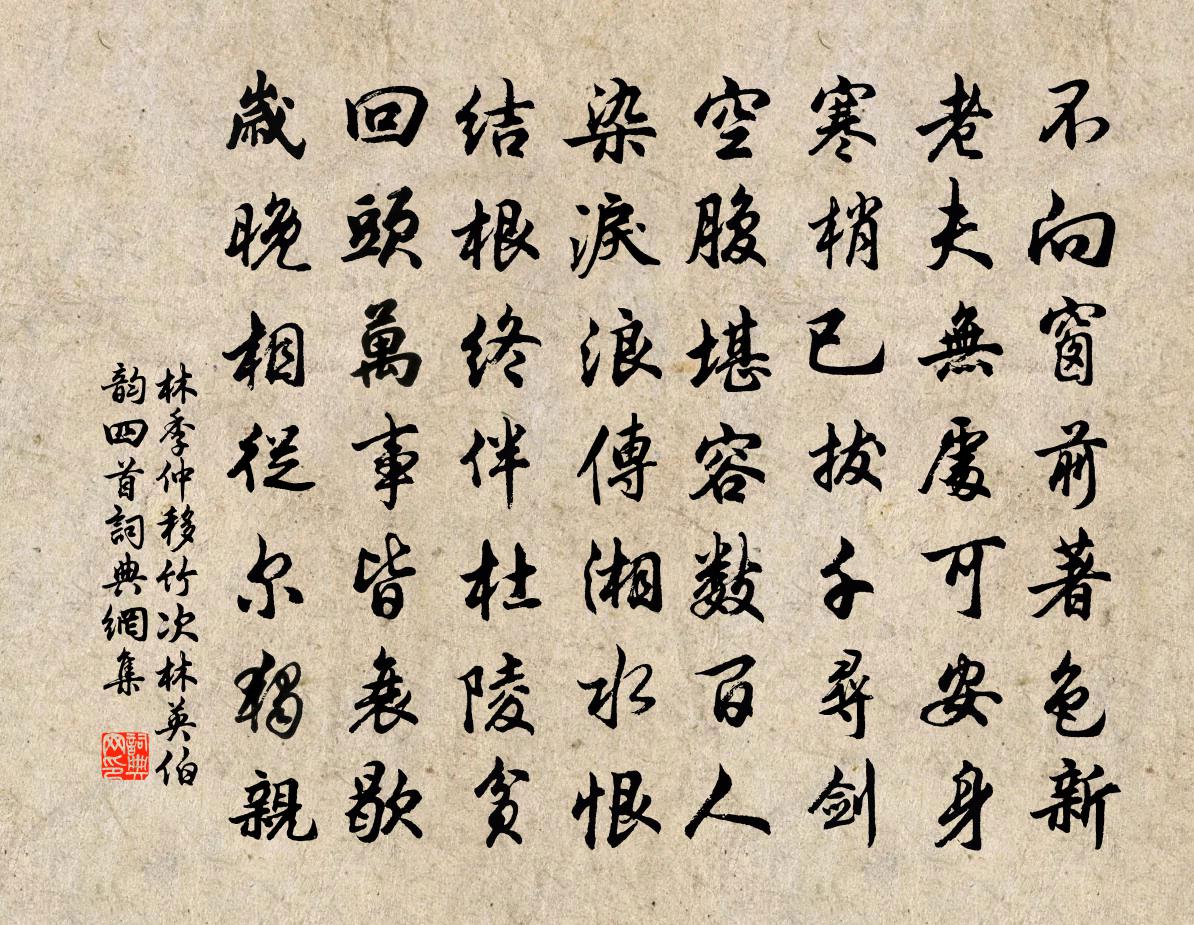 不向窗前著色新
老夫無處可安身
寒梢已拔千尋劍
空腹堪容數百人
染淚浪傳湘水恨
結根終伴杜陵貧
回頭萬事皆衰歇
歲晚相從尔獨親
林季仲移竹次林英伯
韵四首詞典網集
詞典網印